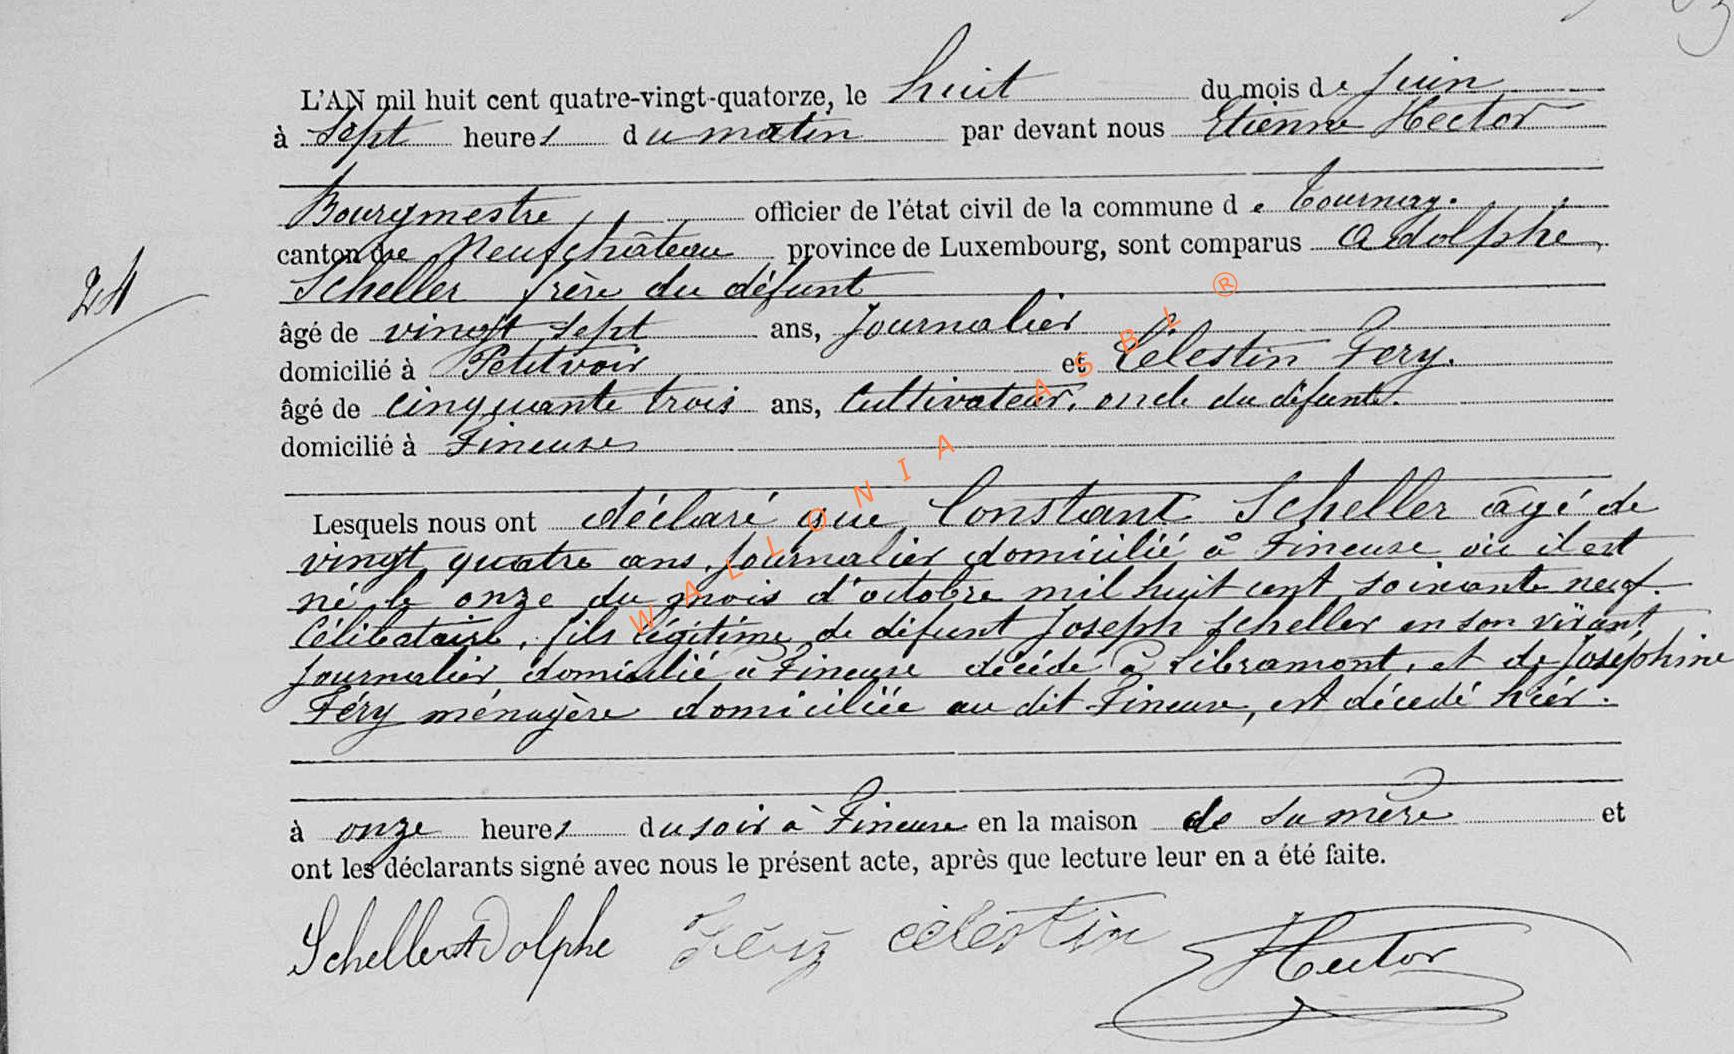 L'AN mil huit cent quatre-vingt-quatorze, le huit du mois de Juin
à Sept heures du matin par devant nous Etienne Hector
Bourgmestre officier de l'état civil de la commune de Tournay.
canton de Neufchâteau province de Luxembourg, sont comparus Adolphe
Scheller frère du défunt
24
âgé de vingt sept ans, Journalier
domicilié à Petitvoir et Célestin Fery.
âgé de cinquante trois ans, Cultivateur, oncle du défunt.
domicilié à Fineuse
Lesquels nous ont déclaré que Constant Scheller âgé de
vingt quatre ans, Journalier domicilié à Fineuse où il est
né le onze du mois d'octobre mil huit cent soixante neuf.
Célibataire, fils légitime de défunt Joseph Scheller en son vivant
Journalier domicilié à Fineuse décédé à Libramont, et de Joséphine
Féry ménagère domiciliée au dit Fineuse, est décédé hier.
à onze heures du soir à Fineuse en la maison de sa mère et
ont les déclarants signé avec nous le présent acte, après que lecture leur en a été faite.
Scheller Adolphe Féry célestin Hector
WALLONIA ASBL ®